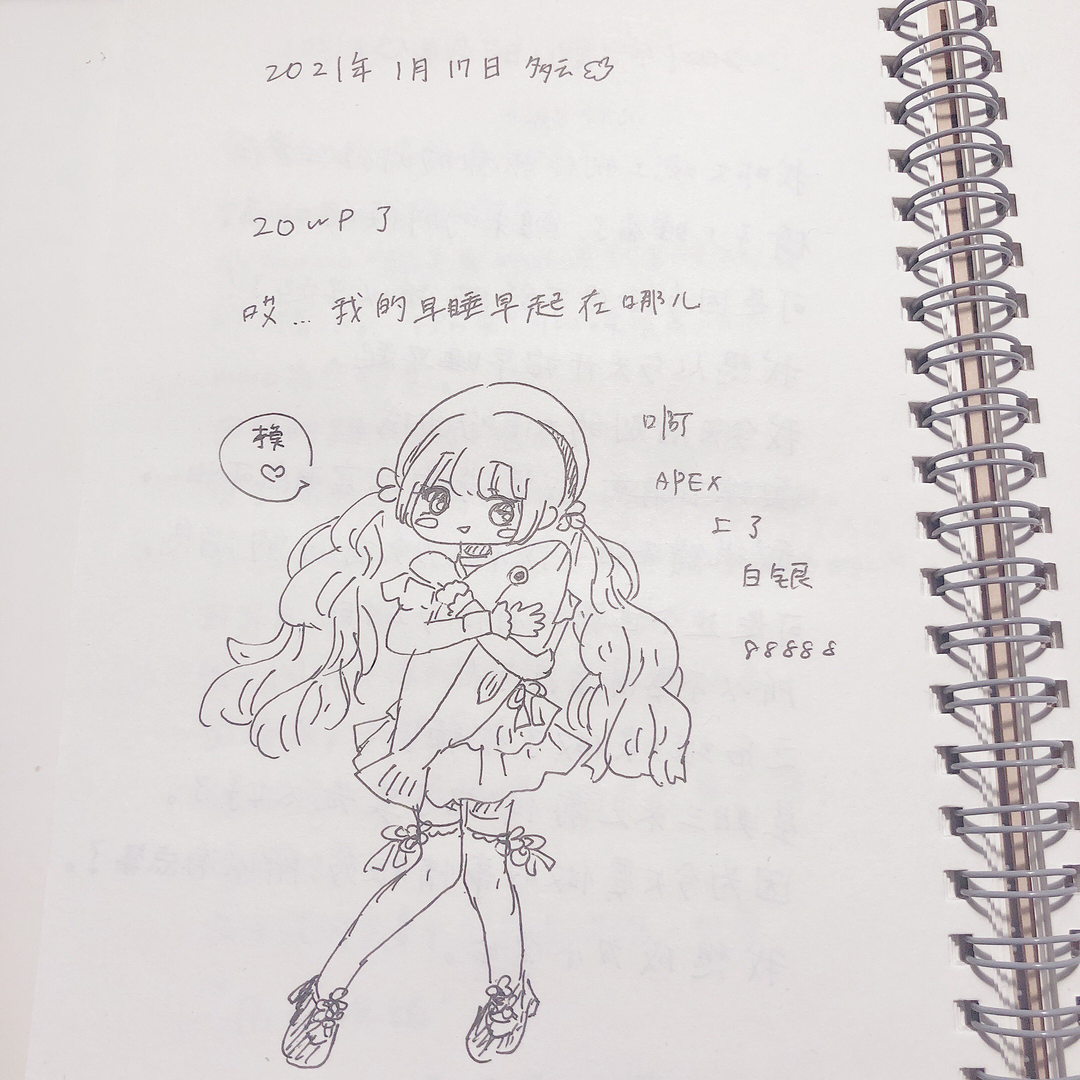 2021年 1月 17日 多云
20wP了
哎... 我的早睡早起在哪儿
换
啊
APEX
上了
白银
88888